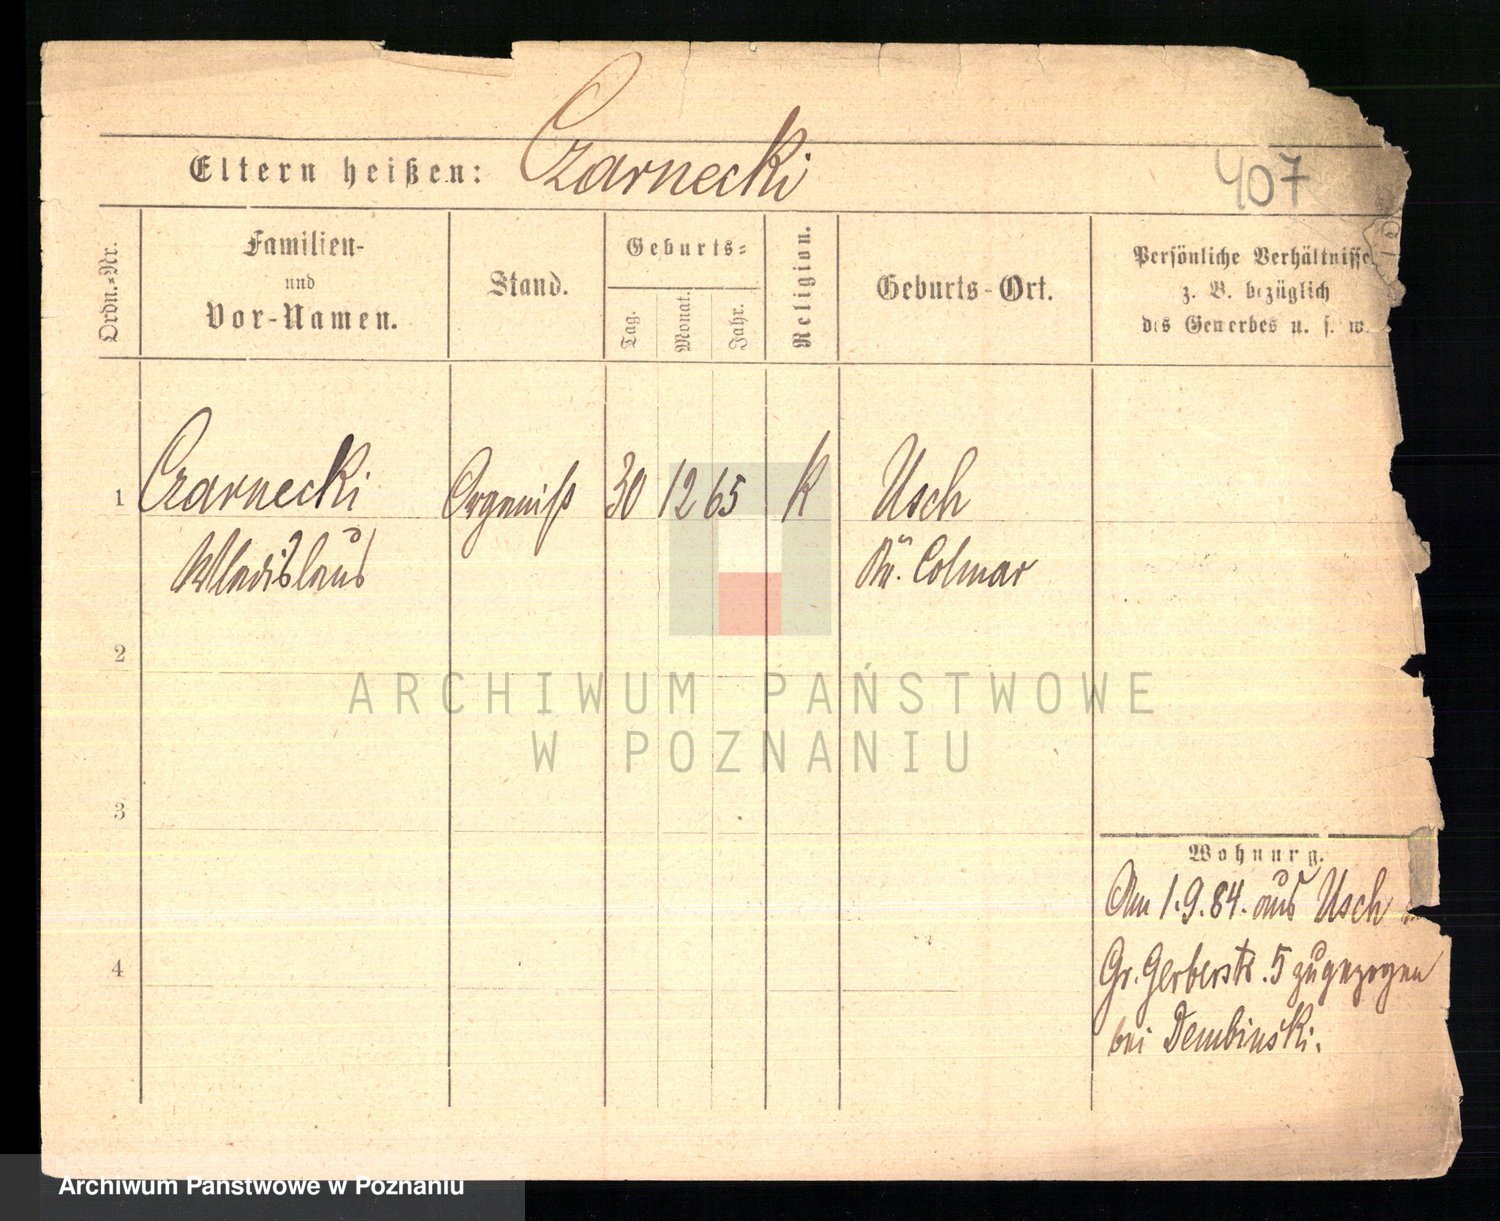 Eltern heißen: Czarnecki
407
Ordn.-Nr.
Familien-
und
Vor-Namen.
Stand.
Geburts-
Tag.
Monat.
Jahr.
Religion.
Geburts-Ort.
Persönliche Verhältnisse
z. B. bezüglich
des Gewerbes u. s. w.
1 Czarnecki Organist 30 12 65 K Usch
Wladislaus Kr. Colmar
2
ARCHIWUM PAŃSTWOWE
W POZNANIU
3
Wohnung.
Am 1.9.84. aus Usch
4
Gr. Gerberstr. 5 zugezogen
bei Dembinski.
Archiwum Państwowe w Poznaniu